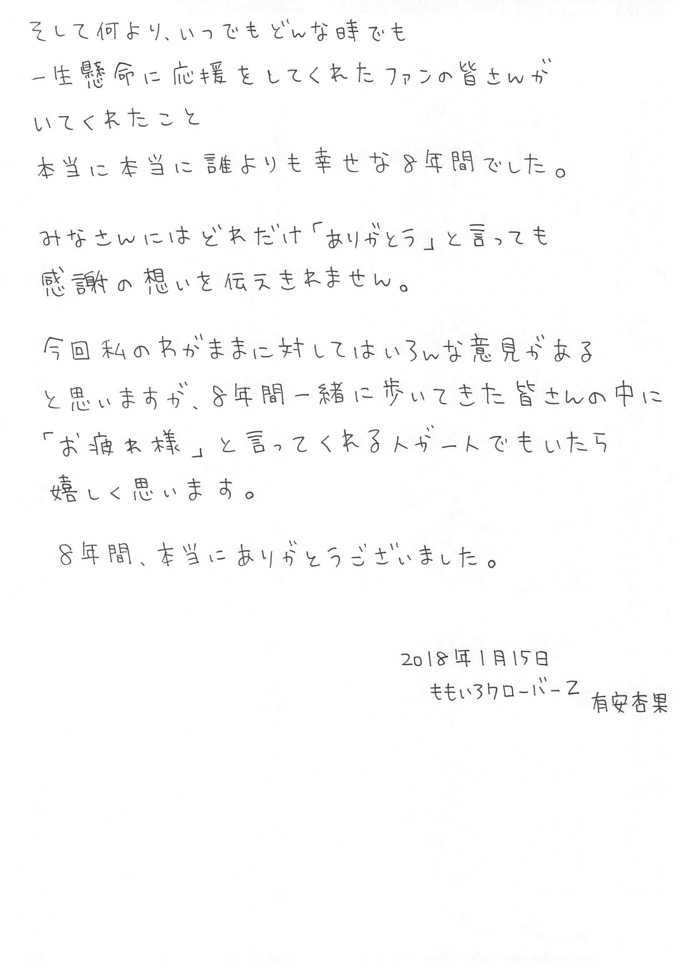 そして何より、いつでもどんな時でも
一生懸命に応援をしてくれたファンの皆さんが
いてくれたこと
本当に本当に誰よりも幸せな8年間でした。
みなさんにはどれだけ「ありがとう」と言っても
感謝の想いを伝えきれません。
今回私のわがままに対してはいろんな意見がある
と思いますが、8年間一緒に歩いてきた皆さんの中に
「お疲れ様」と言ってくれる人が一人でもいたら
嬉しく思います。
8年間、本当にありがとうございました。
2018年1月15日
ももいろクローバーZ
有安杏果